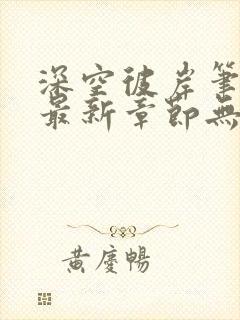 深空彼岸筆
最新章節無
黃慶暢